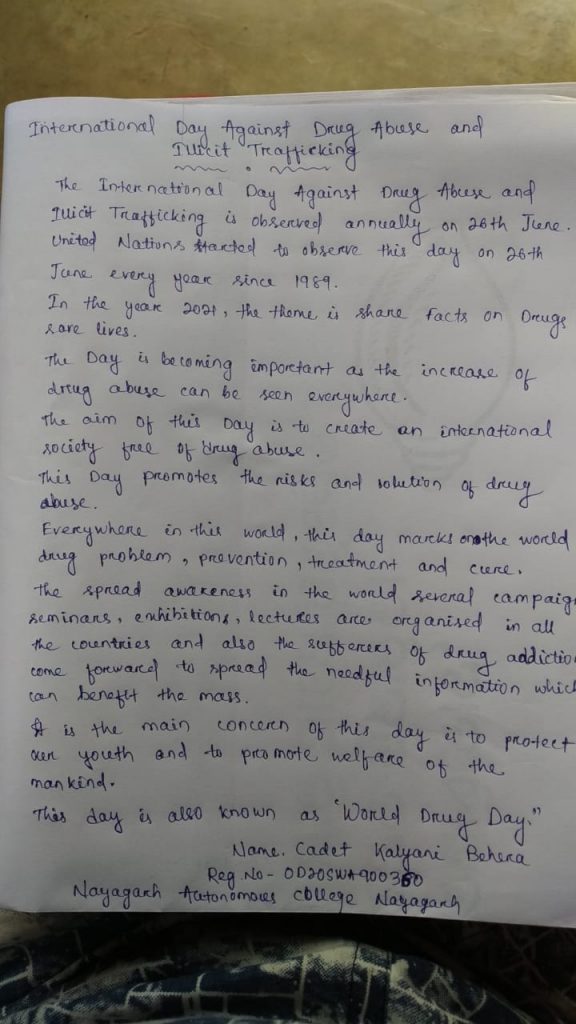 International Day Against Drug Abuse and
Illicit Trafficking
The International Day Against Drug Abuse and
Illicit Trafficking is observed annually on 26th June.
United Nations started to observe this day on 26th
June every year since 1989.
In the year 2021, the theme is share facts on Drugs
save lives.
The Day is becoming important as the increase of
drug abuse can be seen everywhere.
The aim of this Day is to create an international
society free of drug abuse.
This Day promotes the risks and solution of drug
abuse.
Everywhere in this world, this day marks on the world
drug problem, prevention, treatment and cure.
The spread awareness in the world several campaign
seminars, exhibitions, lectures are organised in all
the countries and also the sufferers of drug addiction
come forward to spread the needful information which
can benefit the mass.
It is the main concern of this day is to protect
our youth and to promote welfare of the
mankind.
This day is also known as "World Drug Day."
Name. Cadet Kalyani Behera
Reg. No- OD20SWA900360
Nayagarh Autonomous College Nayagarh